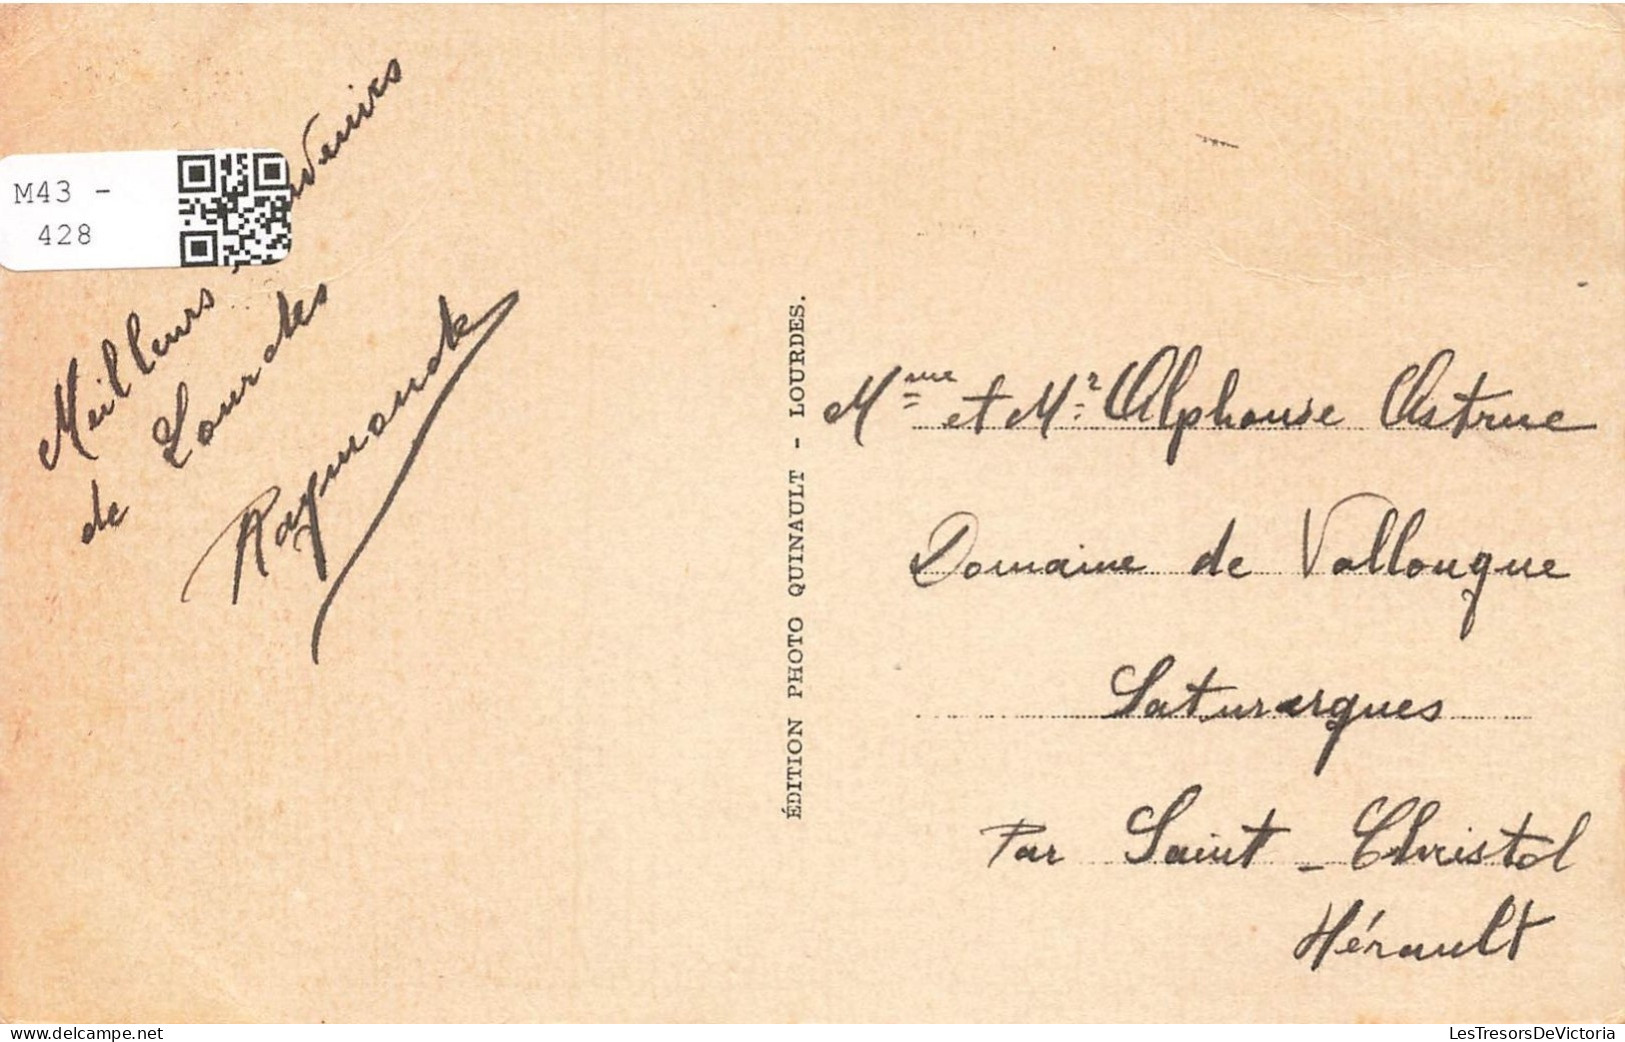 Meilleurs
de Lourdes
Raymonde
M43 -
428
ÉDITION PHOTO QUINAULT - LOURDES.
Mme et Mr Alphonse Astruc
Domaine de Vallongue
Saturargues
Par Saint-Christol
Hérault
www.delcampe.net
LesTresorsDeVictoria